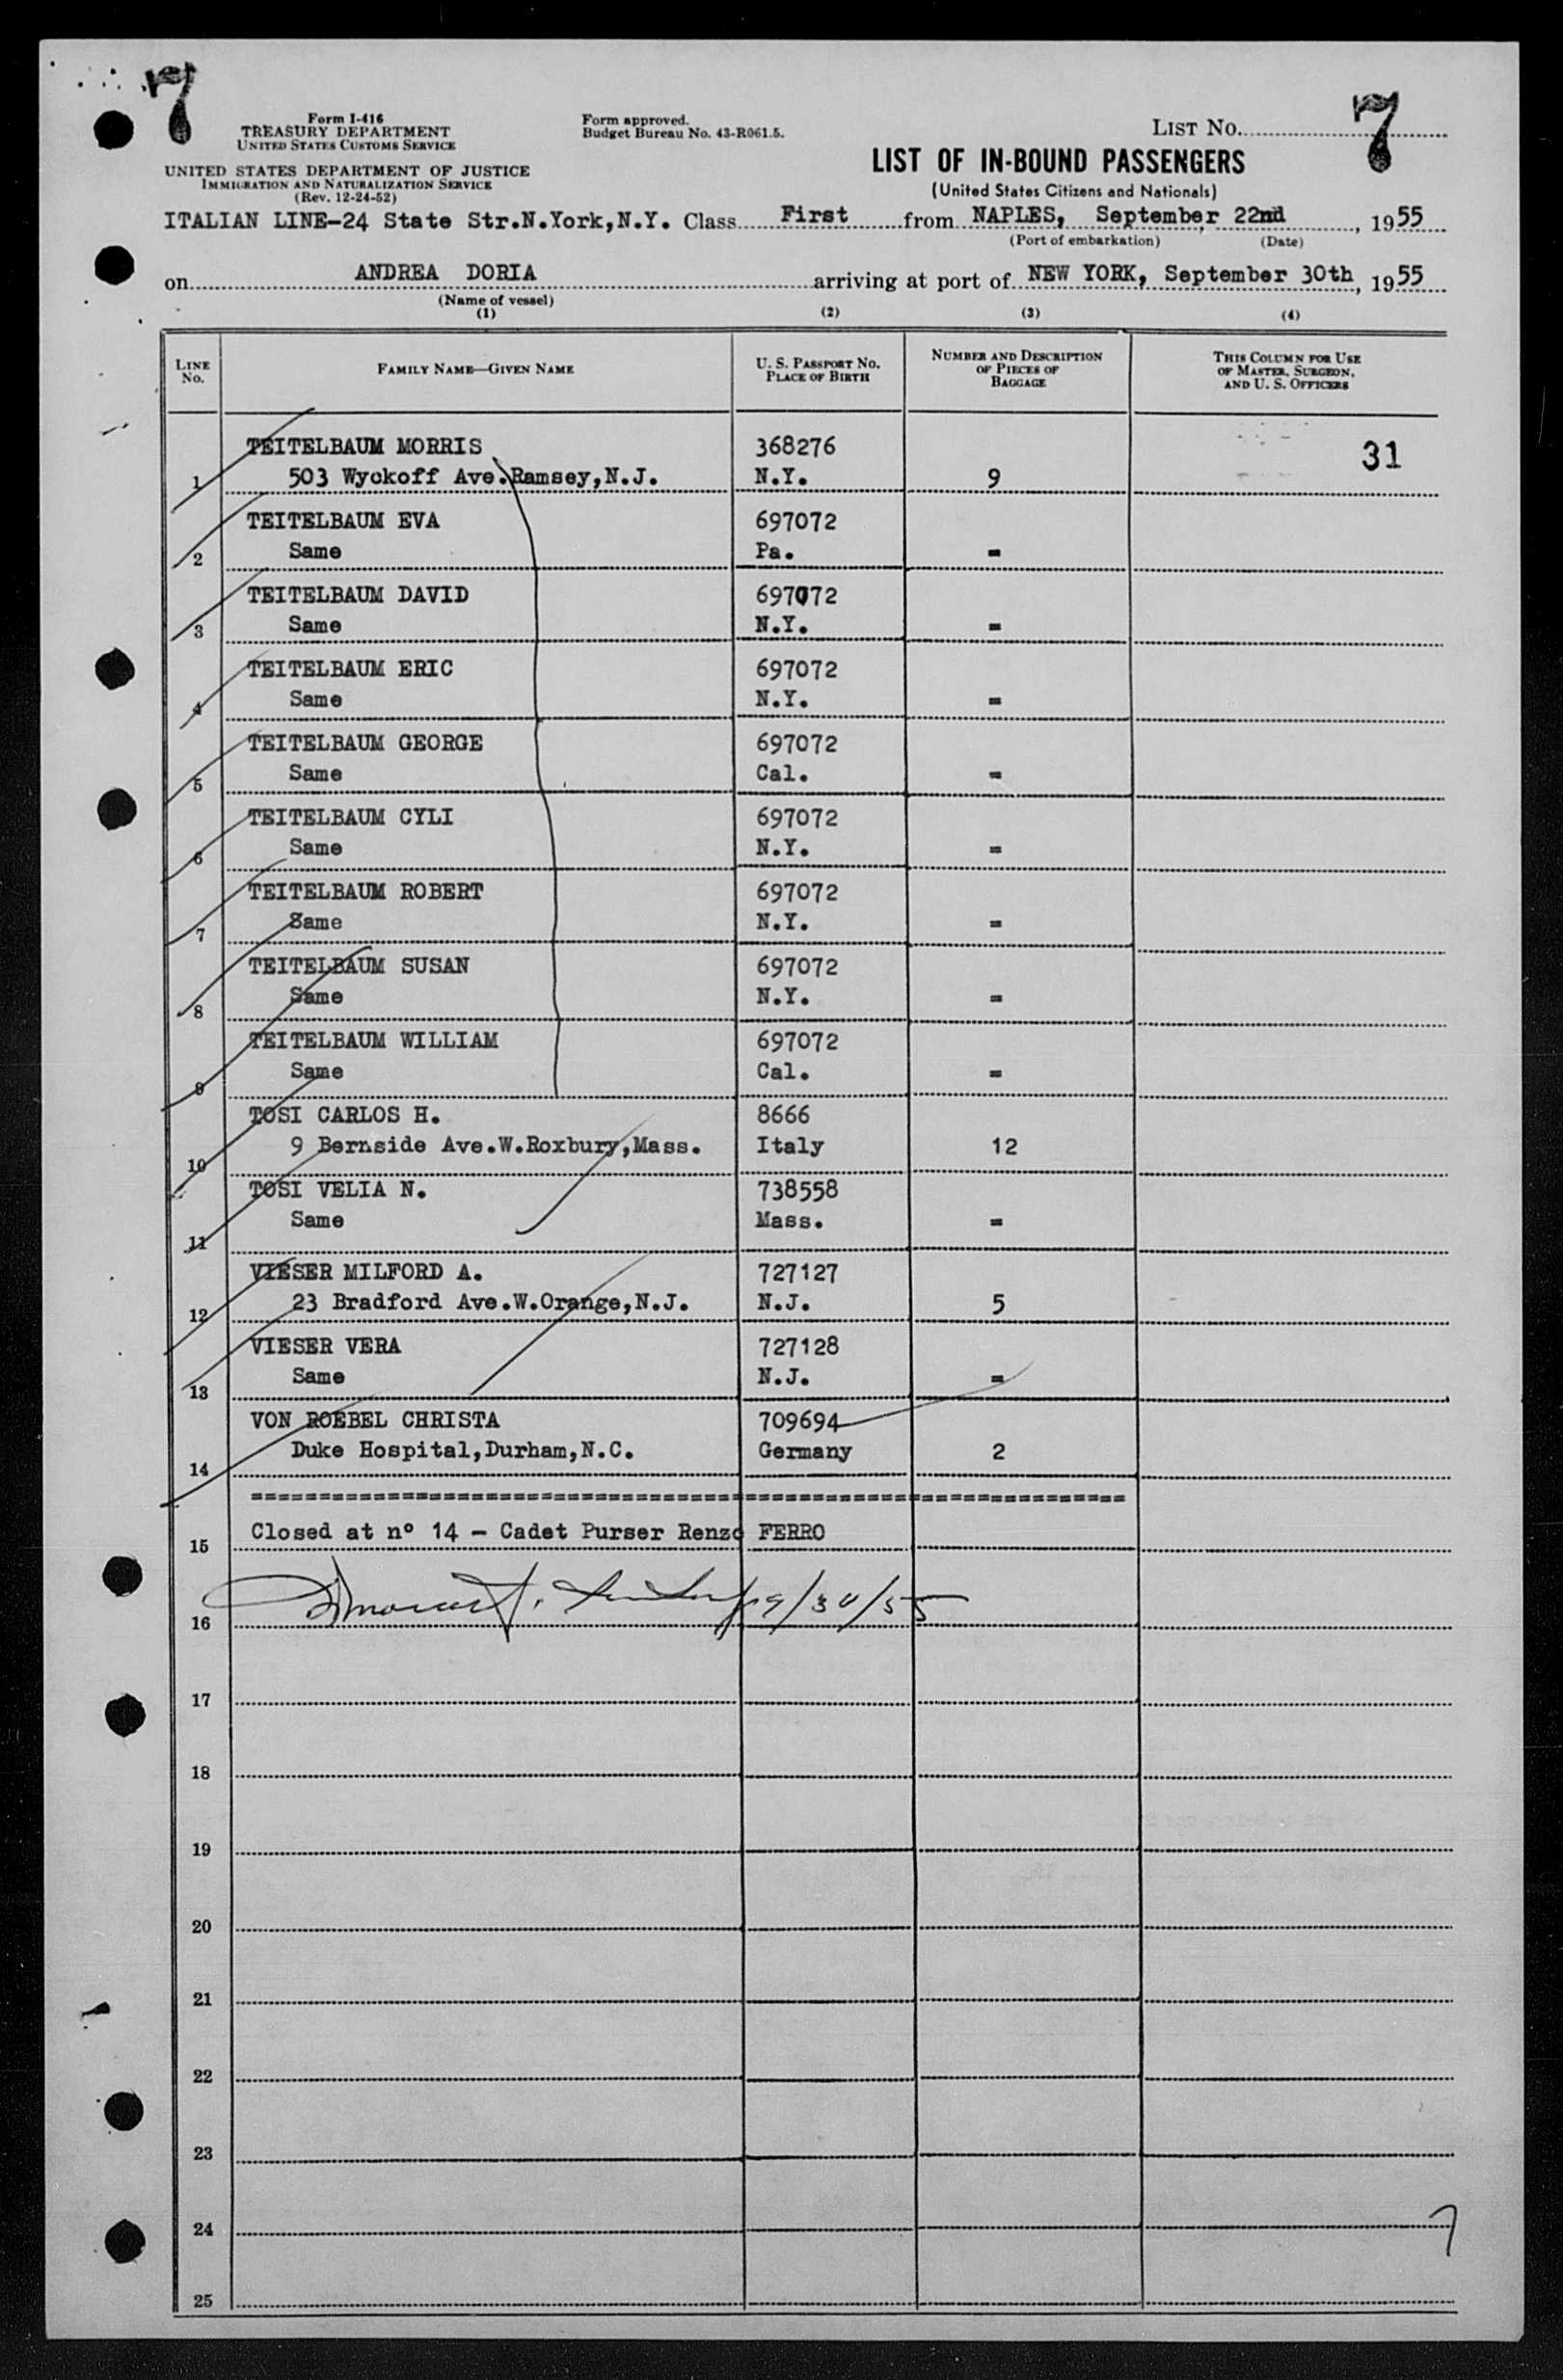 7
Form I-416
TREASURY DEPARTMENT
UNITED STATES CUSTOMS SERVICE
Form approved.
Budget Bureau No. 43-R061.5.
LIST NO. 7
UNITED STATES DEPARTMENT OF JUSTICE
IMMIGRATION AND NATURALIZATION SERVICE
(Rev. 12-24-52)
LIST OF IN-BOUND PASSENGERS
(United States Citizens and Nationals)
ITALIAN LINE-24 State Str.N.York,N.Y. Class First from NAPLES, September 22nd, 1955
(Port of embarkation) (Date)
on ANDREA DORIA arriving at port of NEW YORK, September 30th, 1955
(Name of vessel)
(1) (2) (3) (4)
LINE No. FAMILY NAME—GIVEN NAME U. S. PASSPORT NO. PLACE OF BIRTH NUMBER AND DESCRIPTION OF PIECES OF BAGGAGE THIS COLUMN FOR USE OF MASTER, SURGEON, AND U. S. OFFICERS
TEITELBAUM MORRIS 368276 31
1 503 Wyckoff Ave.Ramsey,N.J. N.Y. 9
TEITELBAUM EVA 697072
2 Same Pa. =
TEITELBAUM DAVID 697072
3 Same N.Y. =
TEITELBAUM ERIC 697072
4 Same N.Y. =
TEITELBAUM GEORGE 697072
5 Same Cal. =
TEITELBAUM CYLI 697072
6 Same N.Y. =
TEITELBAUM ROBERT 697072
7 Same N.Y. =
TEITELBAUM SUSAN 697072
8 Same N.Y. =
TEITELBAUM WILLIAM 697072
9 Same Cal. =
TOSI CARLOS H. 8666
10 9 Bernside Ave.W.Roxbury,Mass. Italy 12
TOSI VELIA N. 738558
11 Same Mass. =
VIESER MILFORD A. 727127
12 23 Bradford Ave.W.Orange,N.J. N.J. 5
VIESER VERA 727128
13 Same N.J. =
VON ROEBEL CHRISTA 709694
14 Duke Hospital,Durham,N.C. Germany 2
=================================================================
15 Closed at nº 14 - Cadet Purser Renzo FERRO
16 9/30/55
17
18
19
20
21
22
23
24
7
25